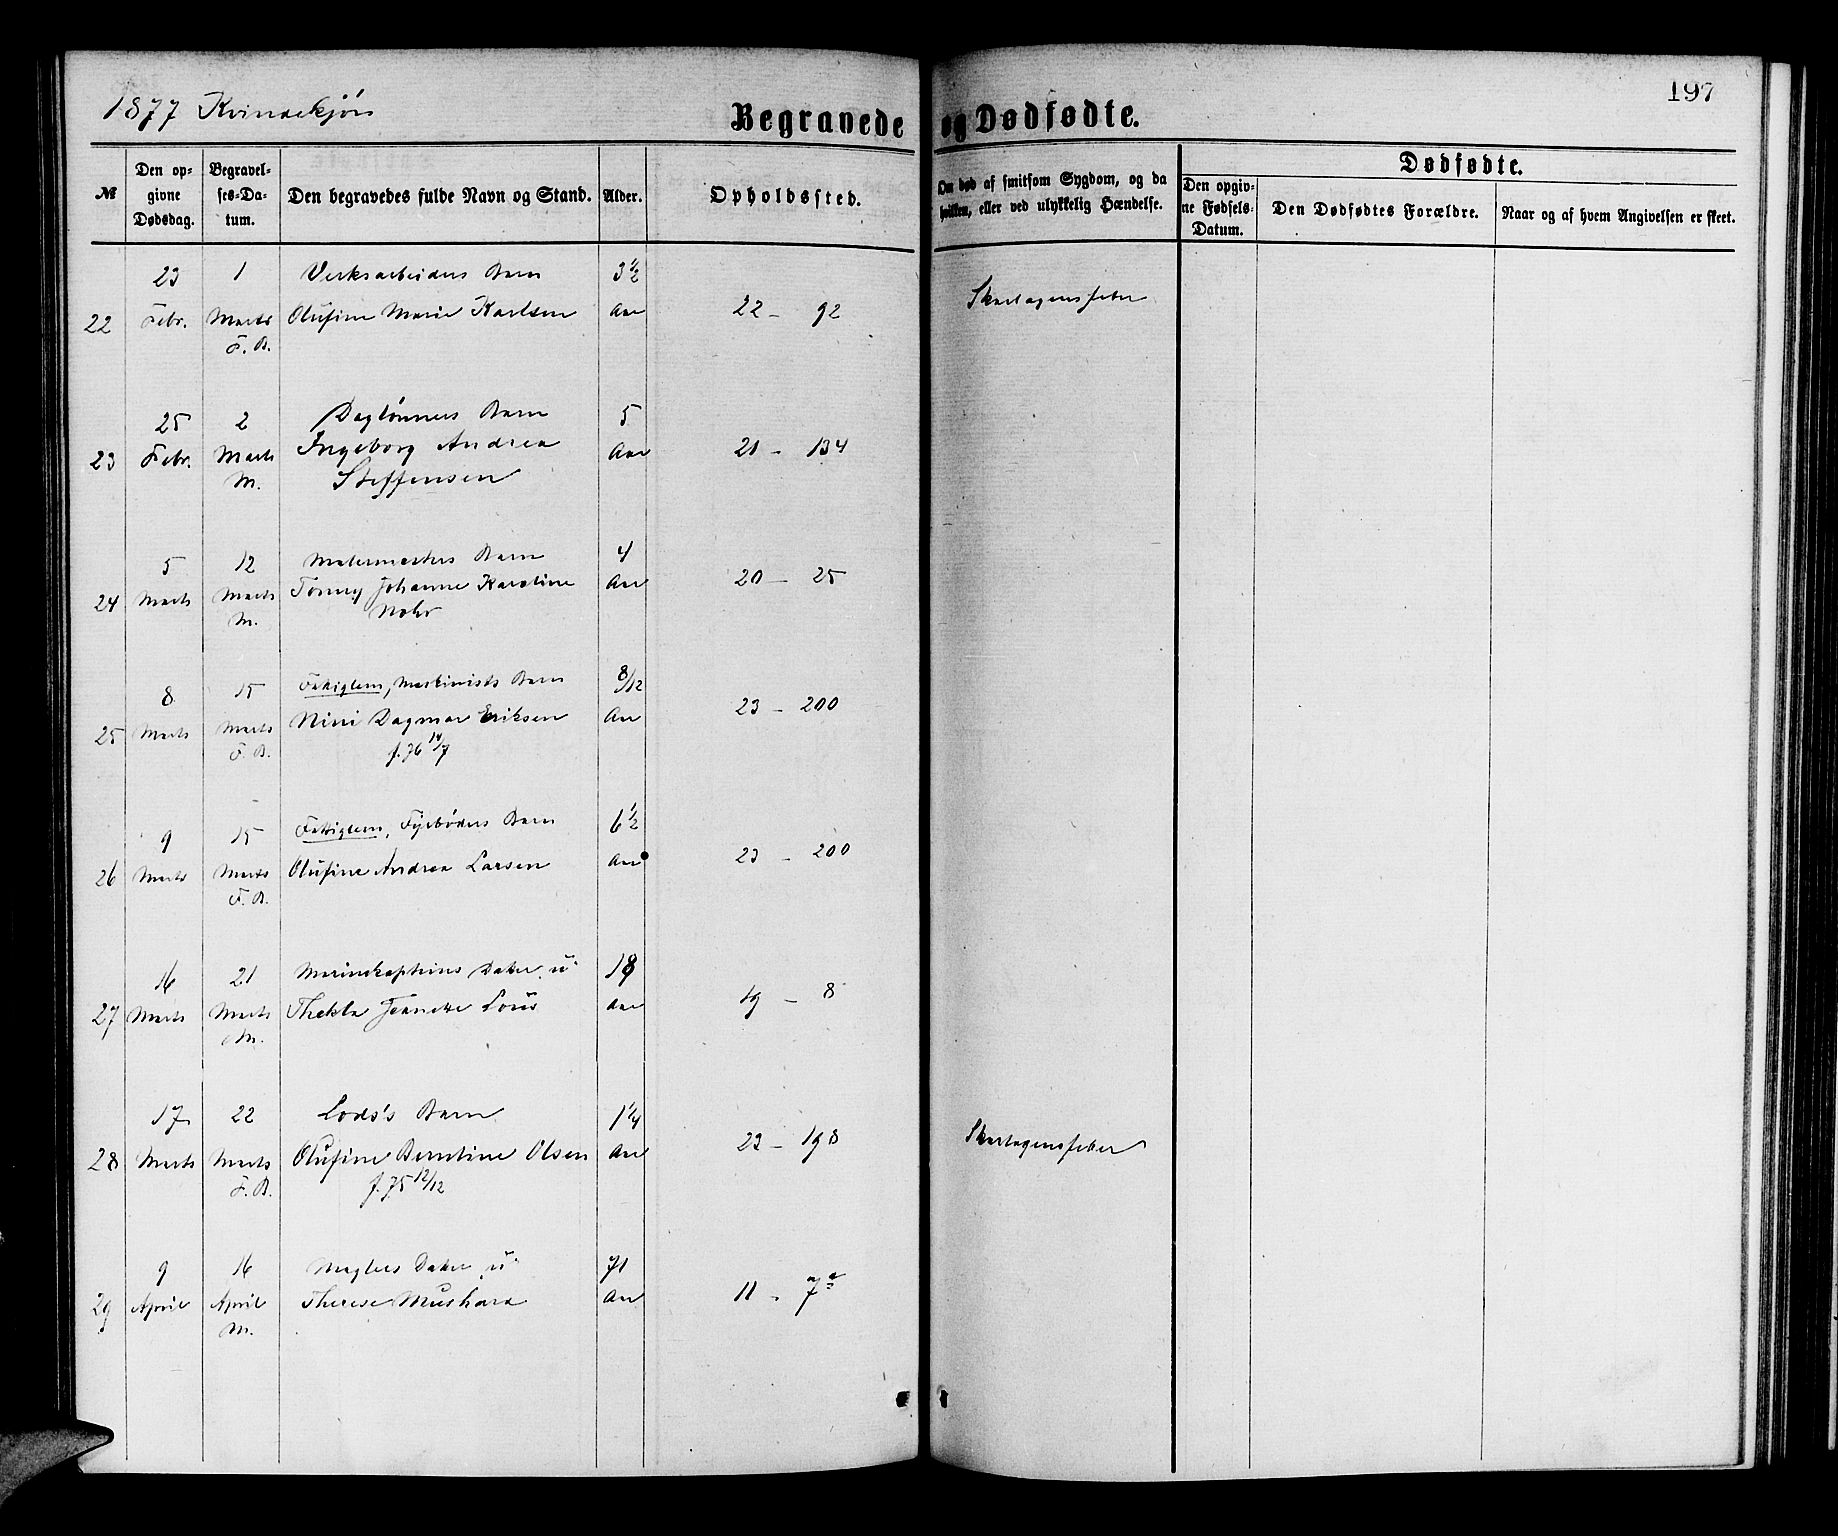 197
1877 Kvindekjön
Begravede og Dødfødte.
№
Den opgivne Dødsdag.
Begravelses-Datum.
Den begravedes fulde Navn og Stand.
Alder.
Opholdssted.
Om død af smitsom Sygdom, og da hvilken, eller ved ulykkelig Hændelse.
Dødfødte.
Den opgivne Fødsels-Datum.
Den Dødfødtes Forældre.
Naar og af hvem Angivelsen er skeet.
23 1 Verksarbeiders Barn 3½
22 Febr. Marts Olufine Marie Karlsen Aar 22 - 92 Skarlagensfeber
F. B.
25 2 Daglönners Barn 5
23 Febr. Marts Ingeborg Andrea Aar 21 - 134
M. Steffensen
5 12 Malermesters Barn 4
24 Marts Marts Johanne Karoline Aar 20 - 25
M.
8 15 Fattiglem, Maskinists Barn 8/12
25 Marts Marts Nini Dagmar Eriksen Aar 23 - 200
F. B. f. 76 14/7
9 15 Fattiglem, Fyrböders Barn 6½
26 Marts Marts Olufine Andrea Larsen Aar 23 - 200
F. B.
16 21 Marinekapteins Datter, u 18
27 Marts Marts Thekla Jeanette Aar 19 - 8
M.
17 22 Lods's Barn 1¼
28 Marts Marts Olufine Berntine Olsen Aar 23 - 198 Skarlagensfeber
F. B. f. 75 12/12
9 16 Datter u 71
29 April April Therese Aar 11 - 7
M.